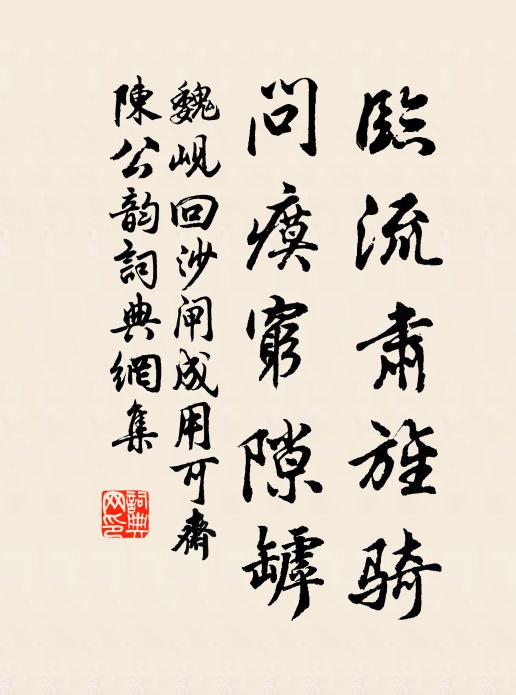 臨流肅旌騎
問瘼窮隙罅
魏峴回沙闸成用可齋
陳公韵詞典網集
詞典網印